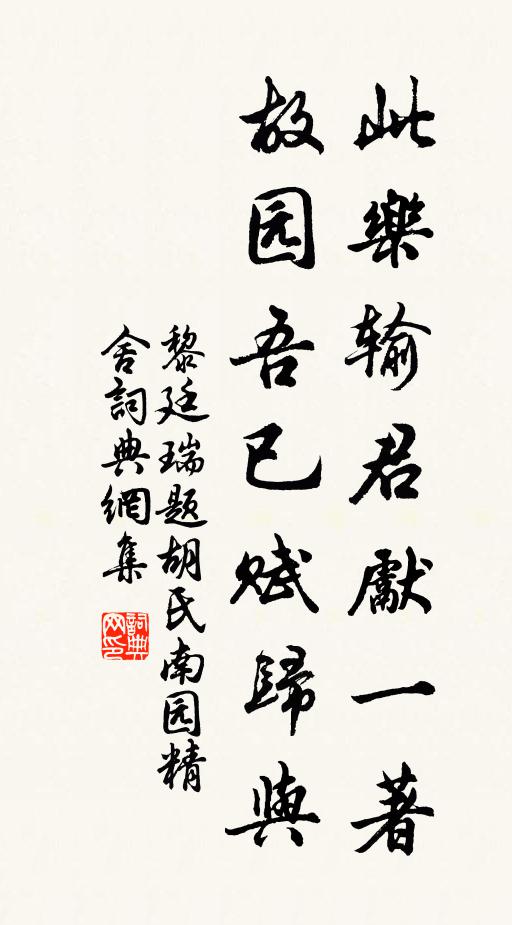 此樂输君獻一著
故园吾已赋歸與
黎廷瑞题胡氏南园精
舍詞典網集
詞典网印